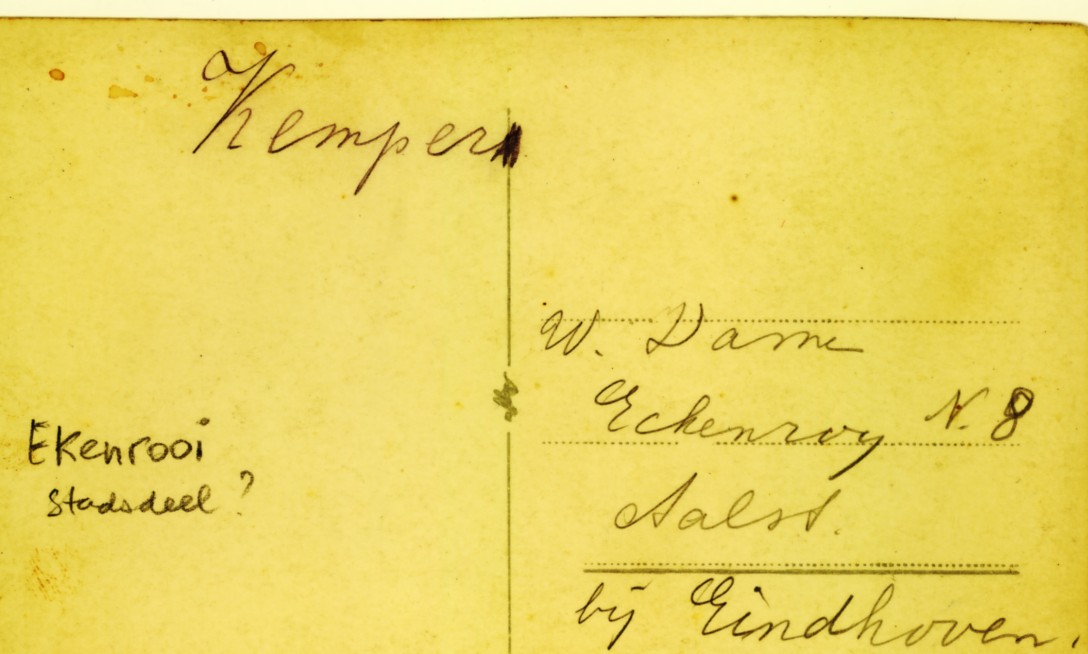 Kemper
Ekenrooi
Stadsdeel?
W. Dame
Eckenroy N. 8
Aalst.
bij Eindhoven.